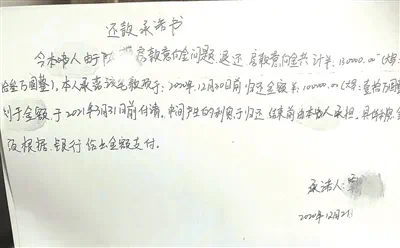 还款承诺书
今本承诺人由于 房款意向金问题退还房款意向金共计￥:130000.00 (大写:
壹拾叁万圆整)。本人承诺该笔款项于:2020年12月20日前归还金额￥:100000.00(大写:壹拾万圆整)
剩于金额于2021年3月31日前付清。中间产生的利息于归还结束前由本承诺人承担。具体利息金
额根据银行给出金额支付。
承诺人:覃
2020年12月2日